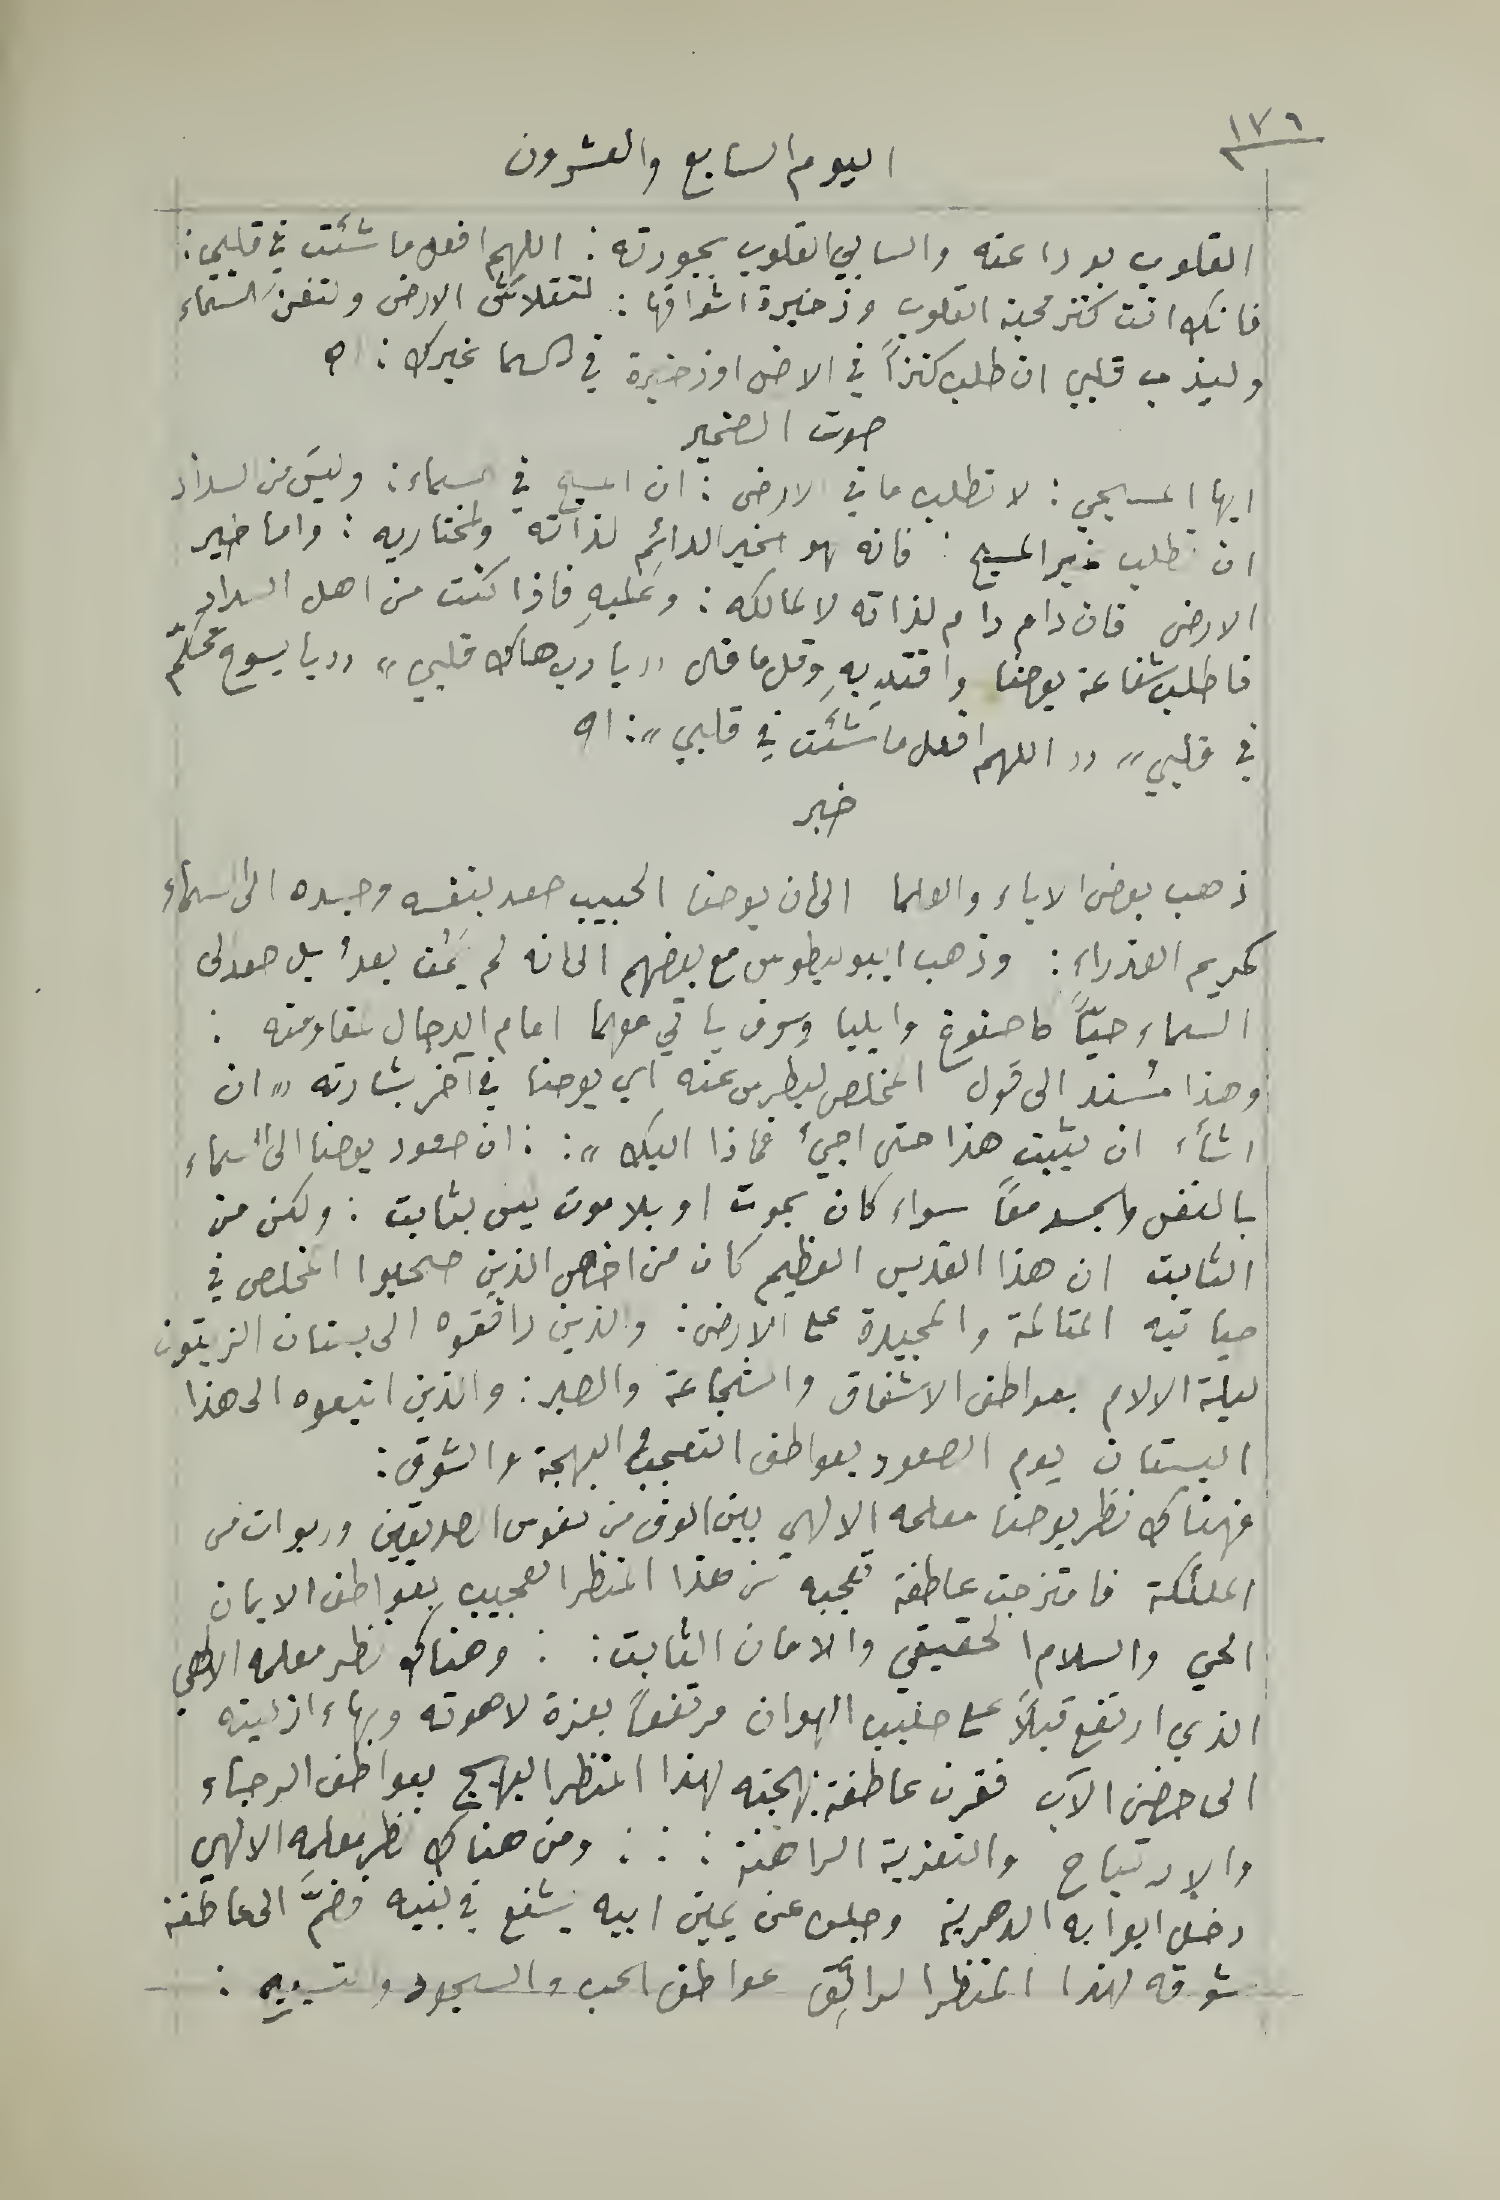 ١٧٦
اليوم السابع والعشرون
القلوب بوداعته والسابي القلوب بجودته : اللهم افعل ما شئت في قلبي :
فانك انت كنز محبة القلوب وذخيرة اشواقها : لتتلاش الارض ولتفنَ السماء
وليذب قلبي ان طلب كنزاً في الارض او ذخيرة في السما غيرك : اه
صوت الضمير
ايها المسيحي : لا تطلب ما في الارض : ان المسيح في السماء : وليس من السداد
ان تطلب غير المسيح : فانه هو الخير الدائم لذاته ولمختاريه : واما خير
الارض فان دام دام لذاته لا لمالكه : وعليهِ فاذا كنت من اهل السداد
فاطلب شفاعة يوحنا واقتدِ بهِ وقل ما قال «يا رب هاك قلبي» «يا يسوع تحكّم
في قلبي» «اللهم افعل ما شئت في قلبي» : اه
خبر
ذهب بعض الاباء والعلما الى ان يوحنا الحبيب صعد بنفسه وجسده الى السماء
كمريم العذراءِ : وذهب ايبوليطوس مع بعضهم الى انه لم يَمُت بعدُ بل صعد الى
السماء حيّاً كاحنوخ وايليا وسوف ياتي معهما امام الدجال لمقاومته :
وهذا مُسند الى قول المخلص لبطرس عنه اي يوحنا في آخر بشارته «ان
اشأء ان يثبت هذا حتى اجيء فماذا اليك» : : ان صعود يوحنا الى السماء
بالنفس والجسد معاً سواء كان بموت او بلا موت ليس بثابت : ولكن من
الثابت ان هذا القديس العظيم كان من اخص الذين صحبوا المخلص في
حياتيه المتالمة والمجيدة على الارض : والذين رافقوه الى بستان الزيتون
ليلة الالام بعواطف الاشفاق والشجاعة والصبر : والذين اتبعوه الى هذا
البستان يوم الصعود بعواطف التعجب والبهجة والشوق :
فهناك نظر يوحنا معلمه الالهي بين الوف من نفوس الصديقين وربوات من
الملئكة فامتزجت عاطفة تعجبه من هذا المنظر العجيب بعواطف الايمان
الحي والسلام الحقيقي والامان الثابت : : وهناك نظر معلمه الالهي
الذي ارتفع قبلاً على صليب الهوان مرتفعاً بعزة لاهوته وبهاء ازليته
الى حضن الآب فقرن عاطفة بهجته لهذا المنظر البهيج بعواطف الرجاء
والارتياح والتعزية الراهنة : : : ومن هناك نظر معلمه الالهي
دخل ابوابه الدهرية وجلس عن يمين ابيه يشفع في بنيه فضمَّ الى عاطفة
شوقه لهذا المنظر الرائق عواطف الحب والسجود والتسبيح :